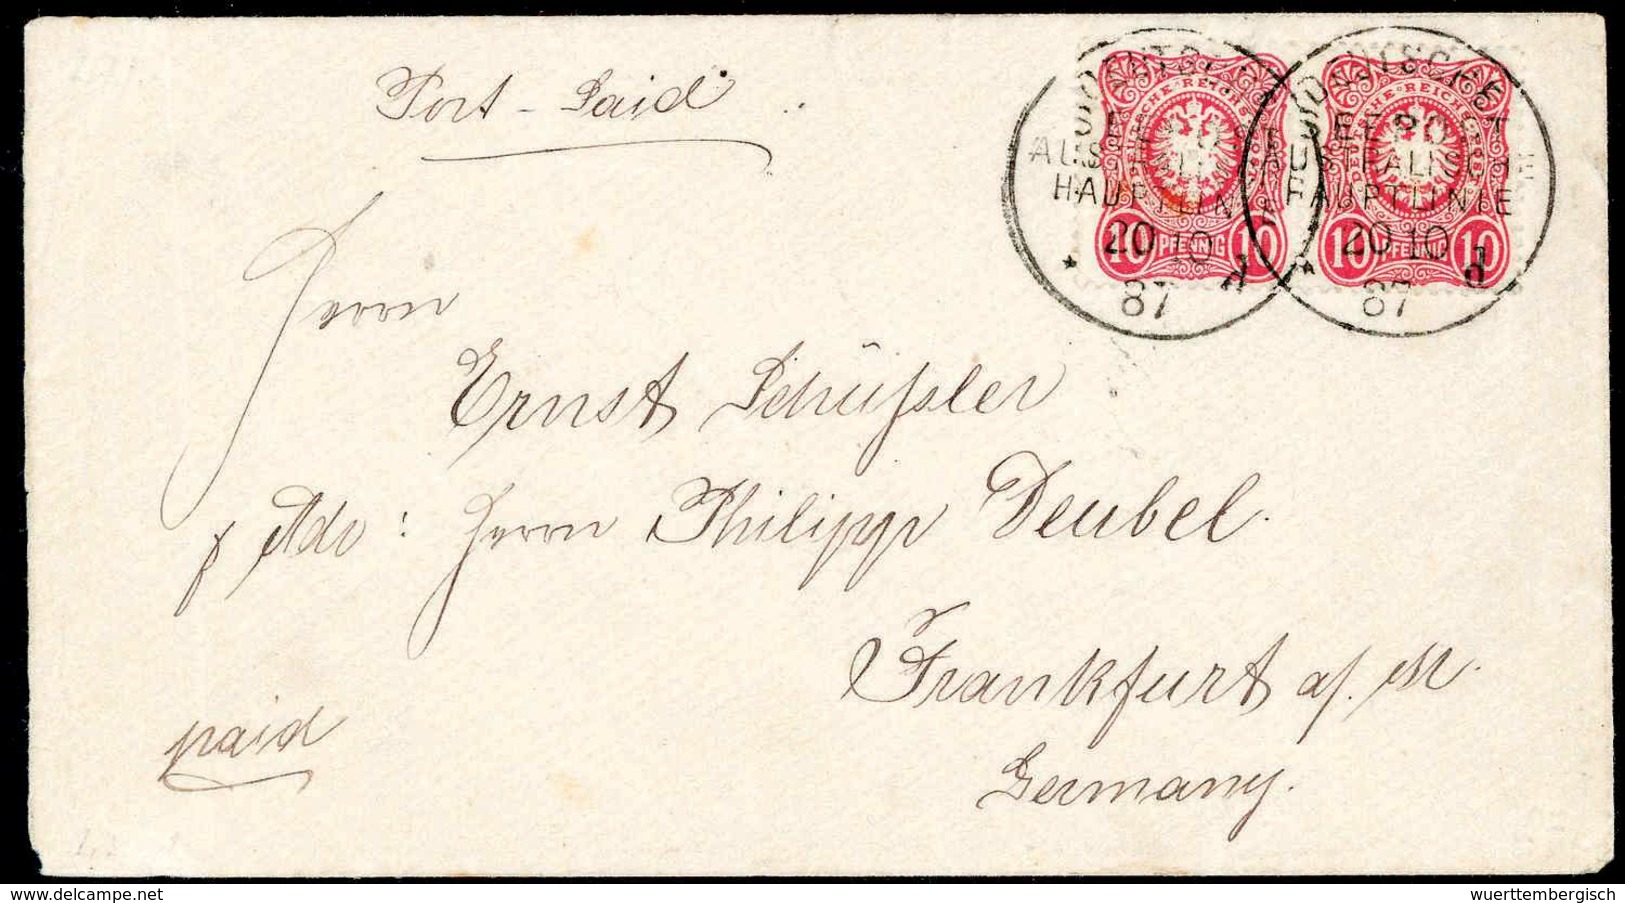 Port-Said
DEUTSCHE REICHS-POST
10 PFENNIG 10
DEUTSCHE SEEPOST
AUSTRALISCHE
HAUPTLINIE
20 10
87
d
DEUTSCHE REICHS-POST
10 PFENNIG 10
DEUTSCHE
SEEPOST
AUSTRALISCHE
HAUPTLINIE
20 10
87
d
Herrn
Ernst Schüssler
p Adr: Herrn Philipp Deubel.
Frankfurt a/. M.
paid
Germany.
delcampe.net
wuerttembergisch